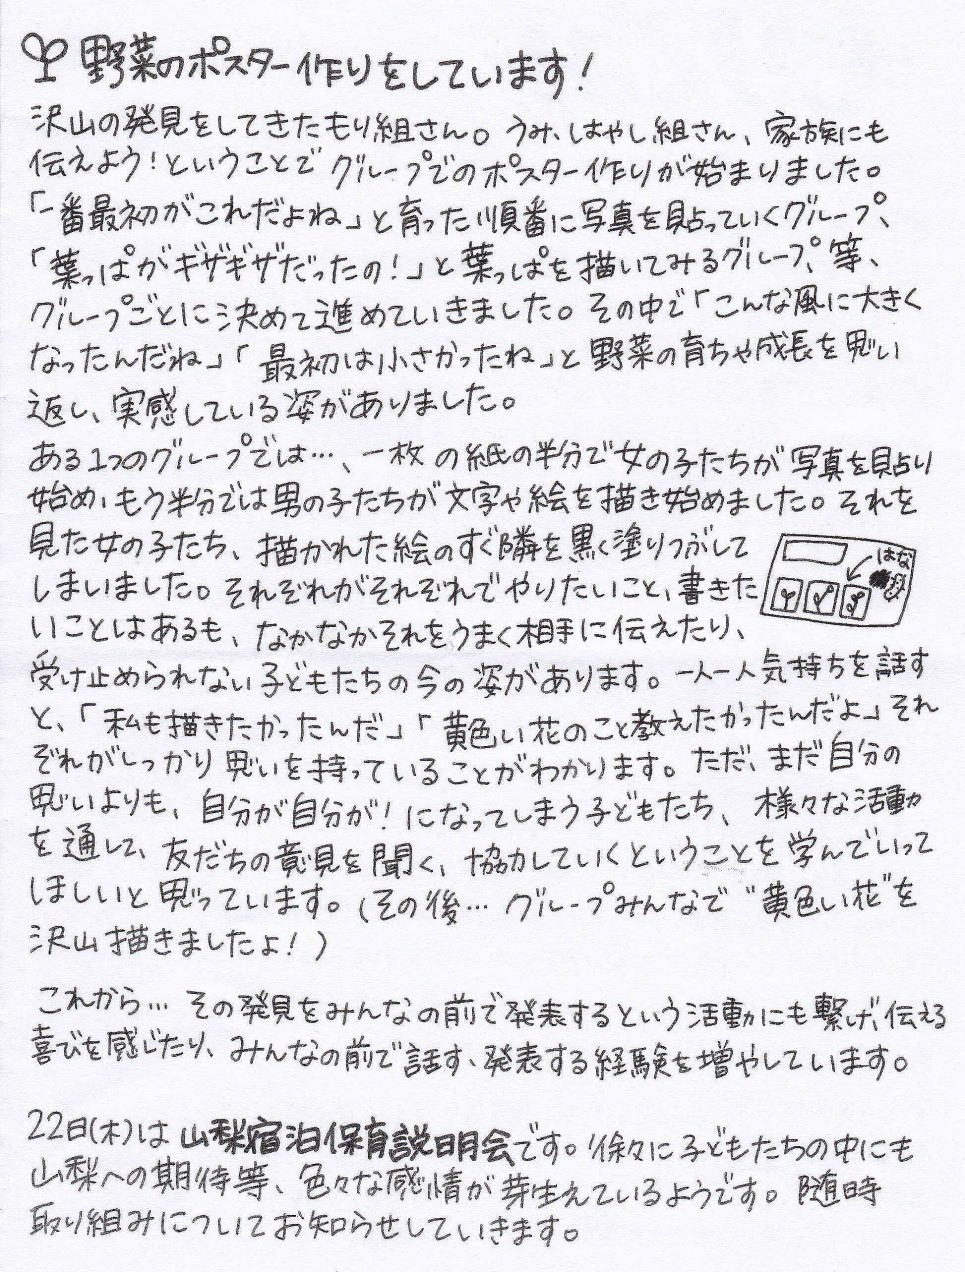 野菜のポスター作りをしています!
沢山の発見をしてきたもり組さん。うみ、はやし組さん、家族にも
伝えよう!ということでグループでのポスター作りが始まりました。
「一番最初がこれだよね」と育った順番に写真を貼っていくグループ、
「葉っぱがギザギザだったの!」と葉っぱを描いてみるグループ、等、
グループごとに決めて進めていきました。その中で「こんな風に大きく
なったんだね」「最初は小さかったね」と野菜の育ちや成長を思い
返し、実感している姿がありました。
ある1つのグループでは…、一枚の紙の半分で女の子たちが写真を貼り
始め、もう半分では男の子たちが文字や絵を描き始めました。それを
見た女の子たち、描かれた絵のすぐ隣を黒く塗りつぶして
はな
しまいました。それぞれがそれぞれでやりたいこと、書きた
いことはあるも、なかなかそれをうまく相手に伝えたり、
受け止められない子どもたちの今の姿があります。一人一人気持ちを話す
と、「私も描きたかったんだ」「黄色い花のこと教えたかったんだよ」それ
ぞれがしっかり思いを持っていることがわかります。ただ、まだ自分の
思いよりも、自分が自分が!になってしまう子どもたち、様々な活動
を通して、友だちの意見を聞く、協力していくということを学んでいって
ほしいと思っています。(その後… グループみんなで"黄色い花"を
沢山描きましたよ!)
これから… その発見をみんなの前で発表するという活動にも繋げ、伝える
喜びを感じたり、みんなの前で話す、発表する経験を増やしています。
22日(木)は山梨宿泊保育説明会です。徐々に子どもたちの中にも
山梨への期待等、色々な感情が芽生えているようです。随時
取り組みについてお知らせしていきます。